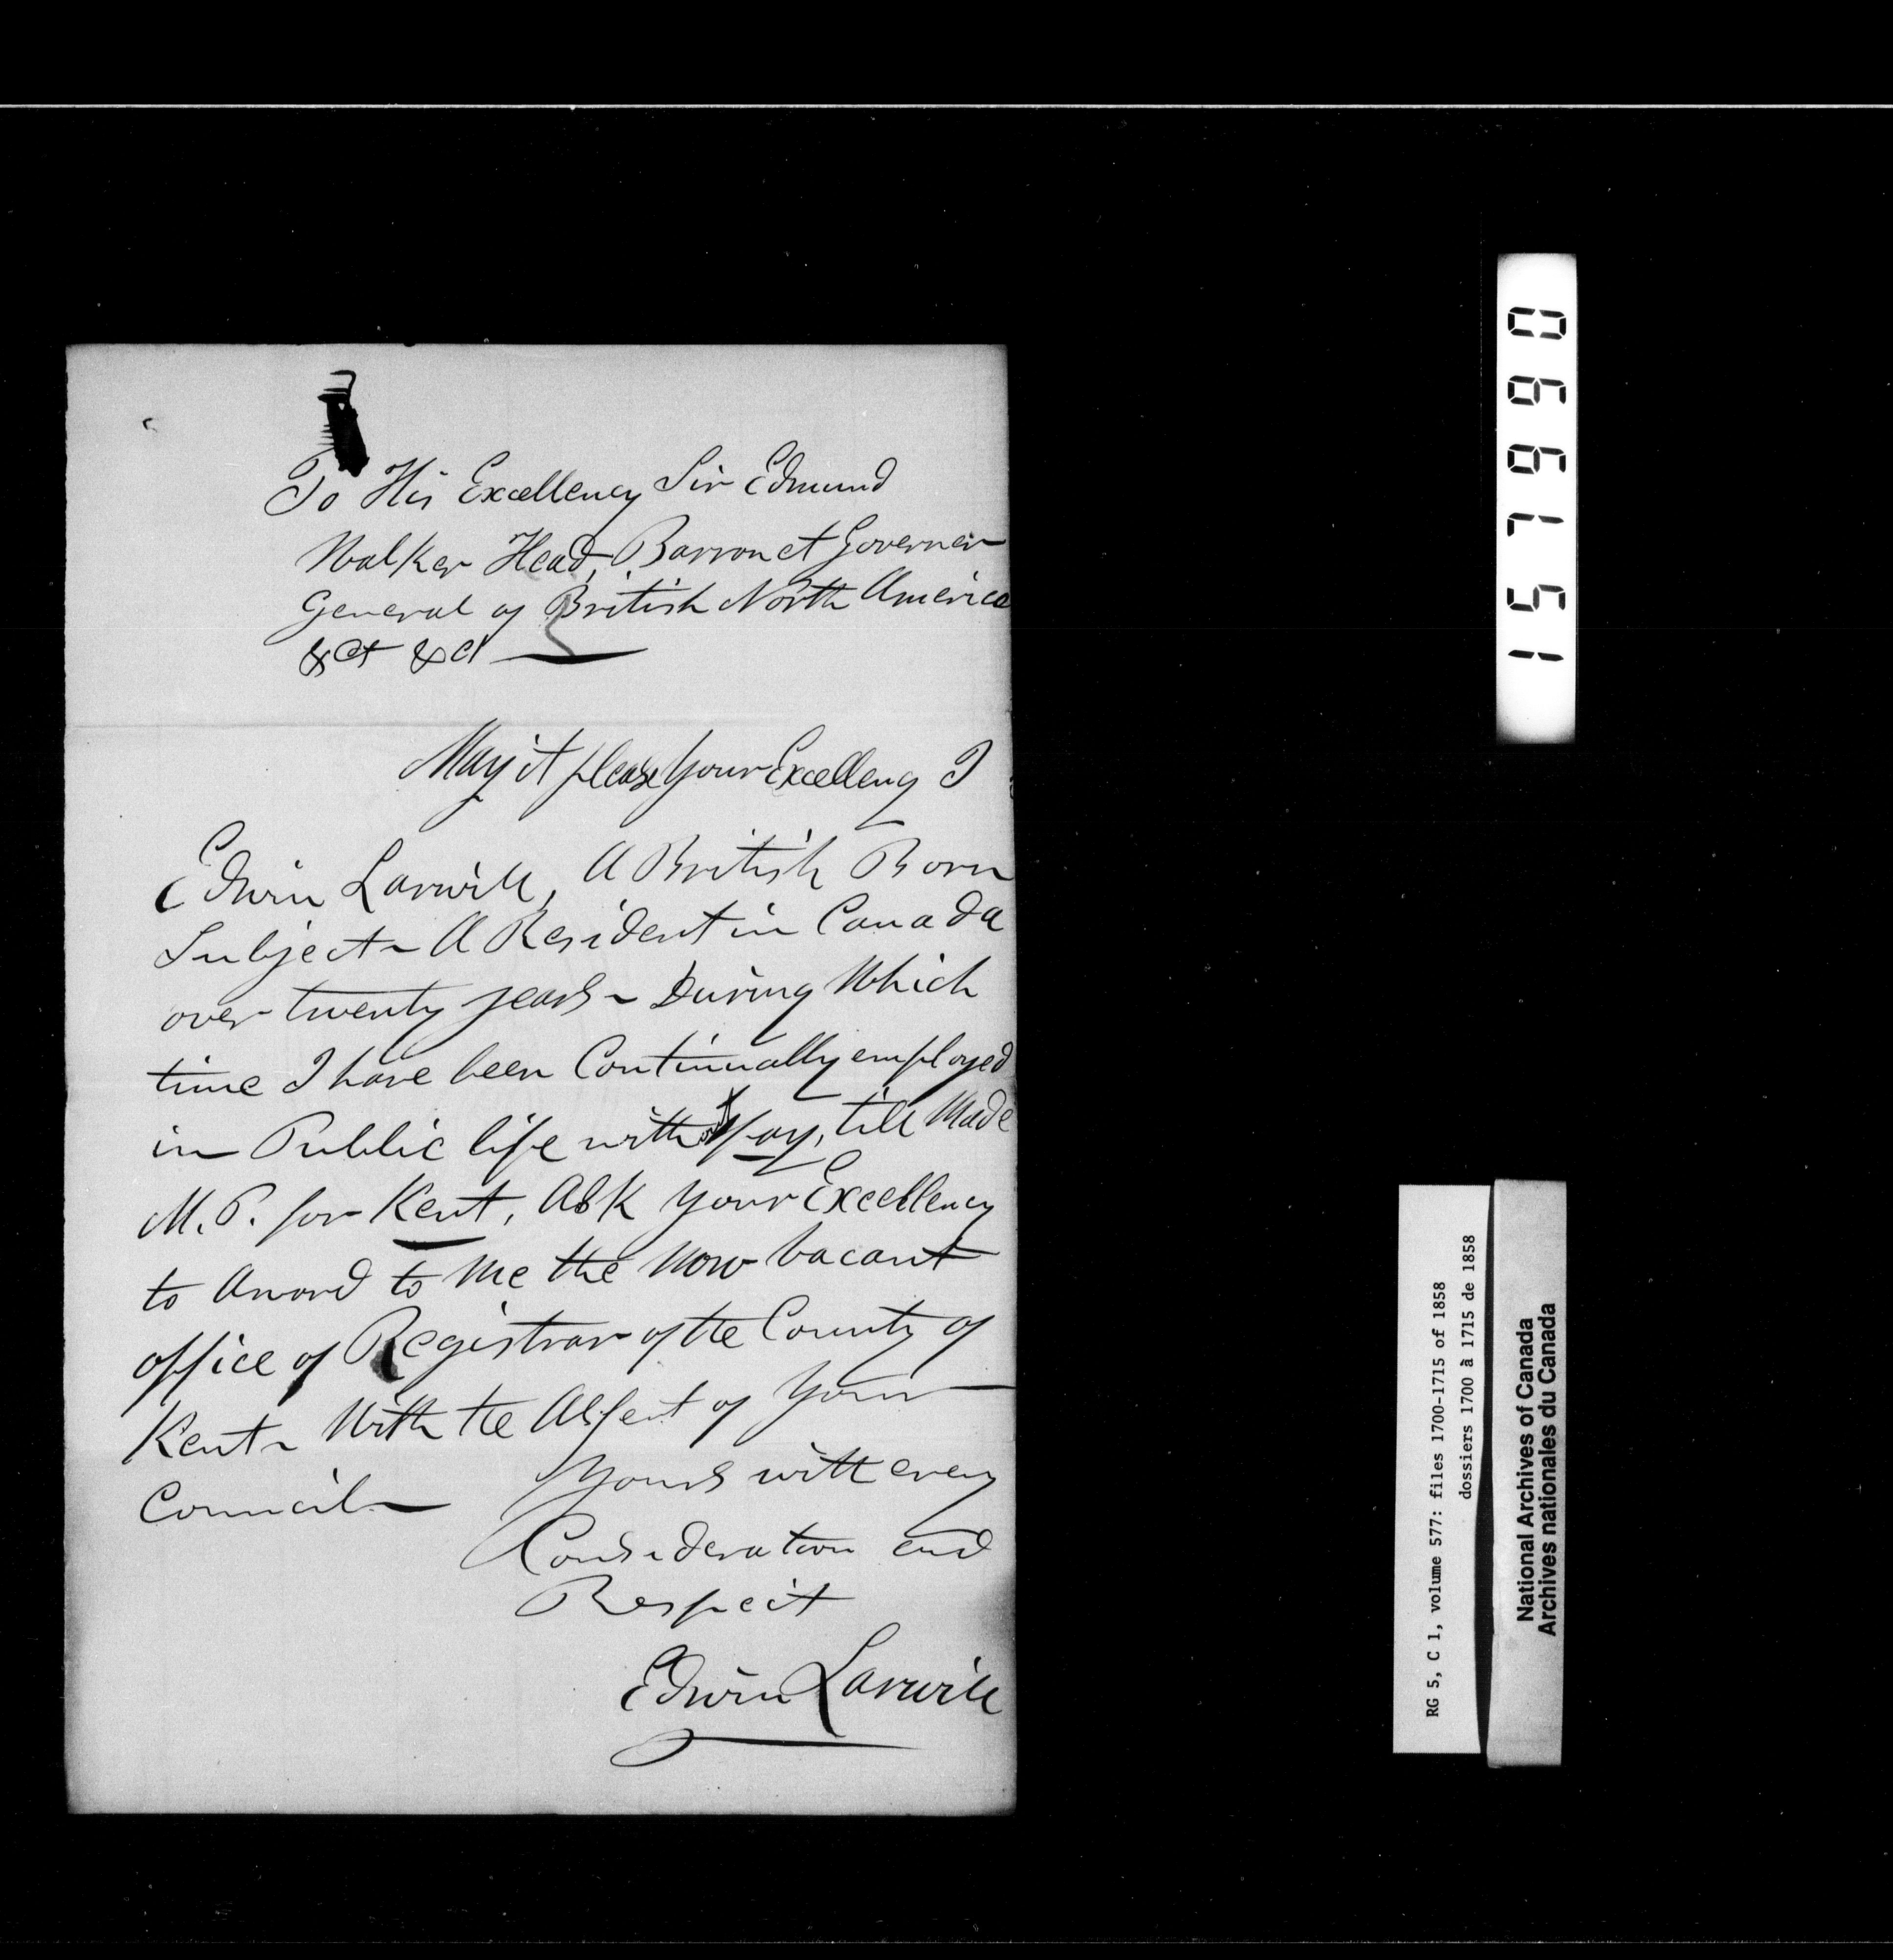 To His Excellency Sir Edmund
Walker Head, Barronet Governer
General of British North America
&ct &ct
May it please Your Excellency I
Edwin Larwill, A British Born
Subject - A Resident in Canada
over twenty years - During Which
time I have been Continually employed
in Public life without pay, till Made
M.P. for Kent, Ask Your Excellency
to Award to Me the Now Vacant
office of Registrar of the County of
Kent - With the Assent of Your
Council -
Yours with every
Consideration and
Respect
Edwin Larwill
151660
RG 5, C 1, volume 577: files 1700-1715 of 1858
dossiers 1700 à 1715 de 1858
National Archives of Canada
Archives nationales du Canada